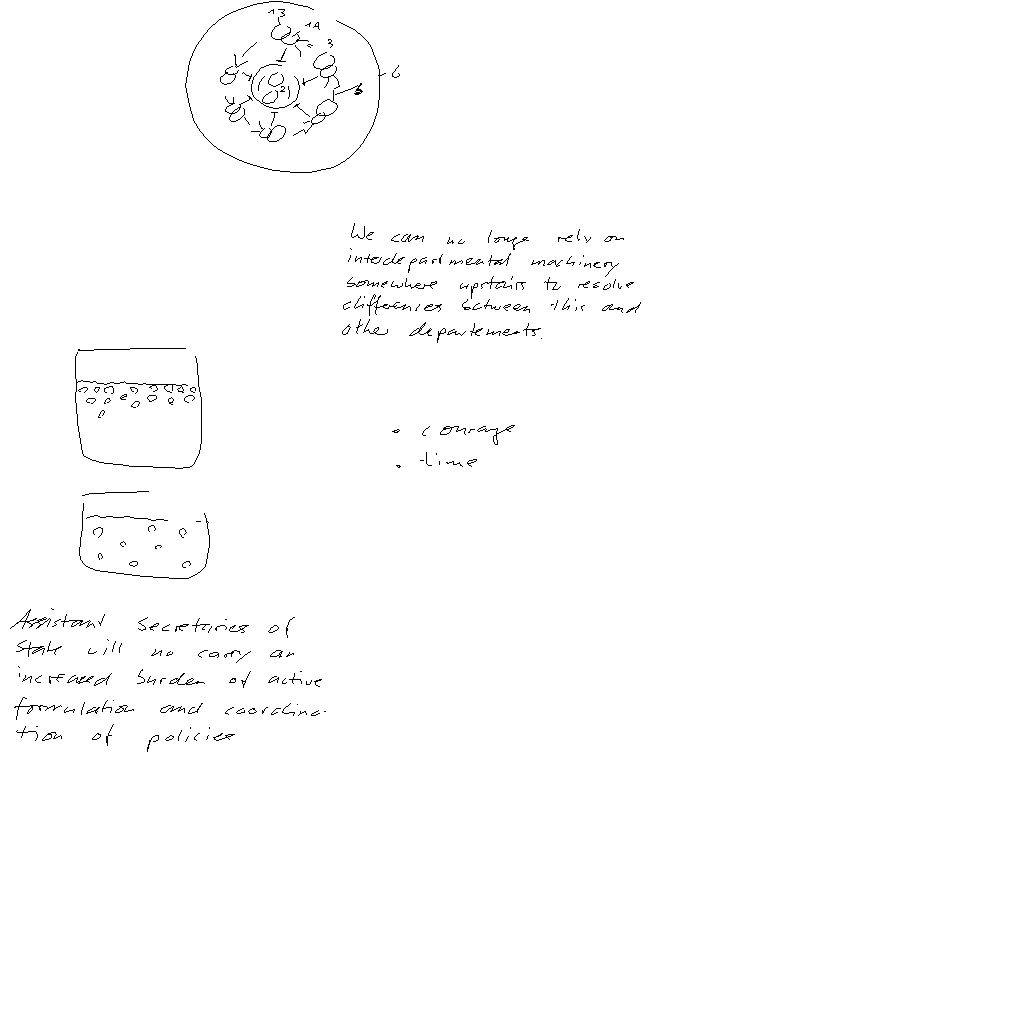 13
1A
3
2
6
5
We can no longe rely on
interdepartmental machinery
somewhere upstairs to resolve
differences between this and
other departements.
• courage
• time
Assistant Secretaries of
State will no carry an
increased burden of active
formulation and coordina-
tion of policies